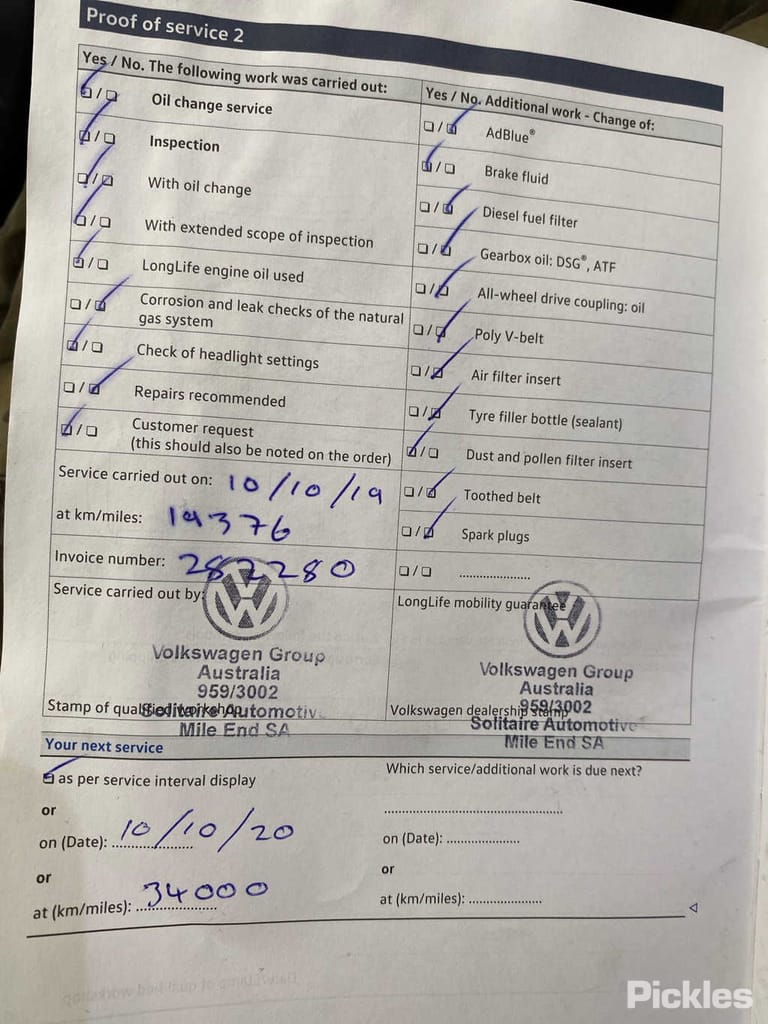 Proof of service 2
Yes / No. The following work was carried out:
Oil change service
Inspection
With oil change
With extended scope of inspection
LongLife engine oil used
Corrosion and leak checks of the natural
gas system
Check of headlight settings
Repairs recommended
Customer request
(this should also be noted on the order)
Service carried out on: 10/10/19
at km/miles: 19376
Invoice number: 282280
Service carried out by:
Volkswagen Group
Australia
959/3002
Solitaire Automotive
Mile End SA
Stamp of qualified workshop
Yes / No. Additional work - Change of:
AdBlue®
Brake fluid
Diesel fuel filter
Gearbox oil: DSG®, ATF
All-wheel drive coupling: oil
Poly V-belt
Air filter insert
Tyre filler bottle (sealant)
Dust and pollen filter insert
Toothed belt
Spark plugs
LongLife mobility guarantee
Volkswagen Group
Australia
959/3002
Solitaire Automotive
Mile End SA
Volkswagen dealership stamp
Your next service
as per service interval display
or
on (Date): 10/10/20
or
at (km/miles): 34000
Which service/additional work is due next?
on (Date):
or
at (km/miles):
Pickles